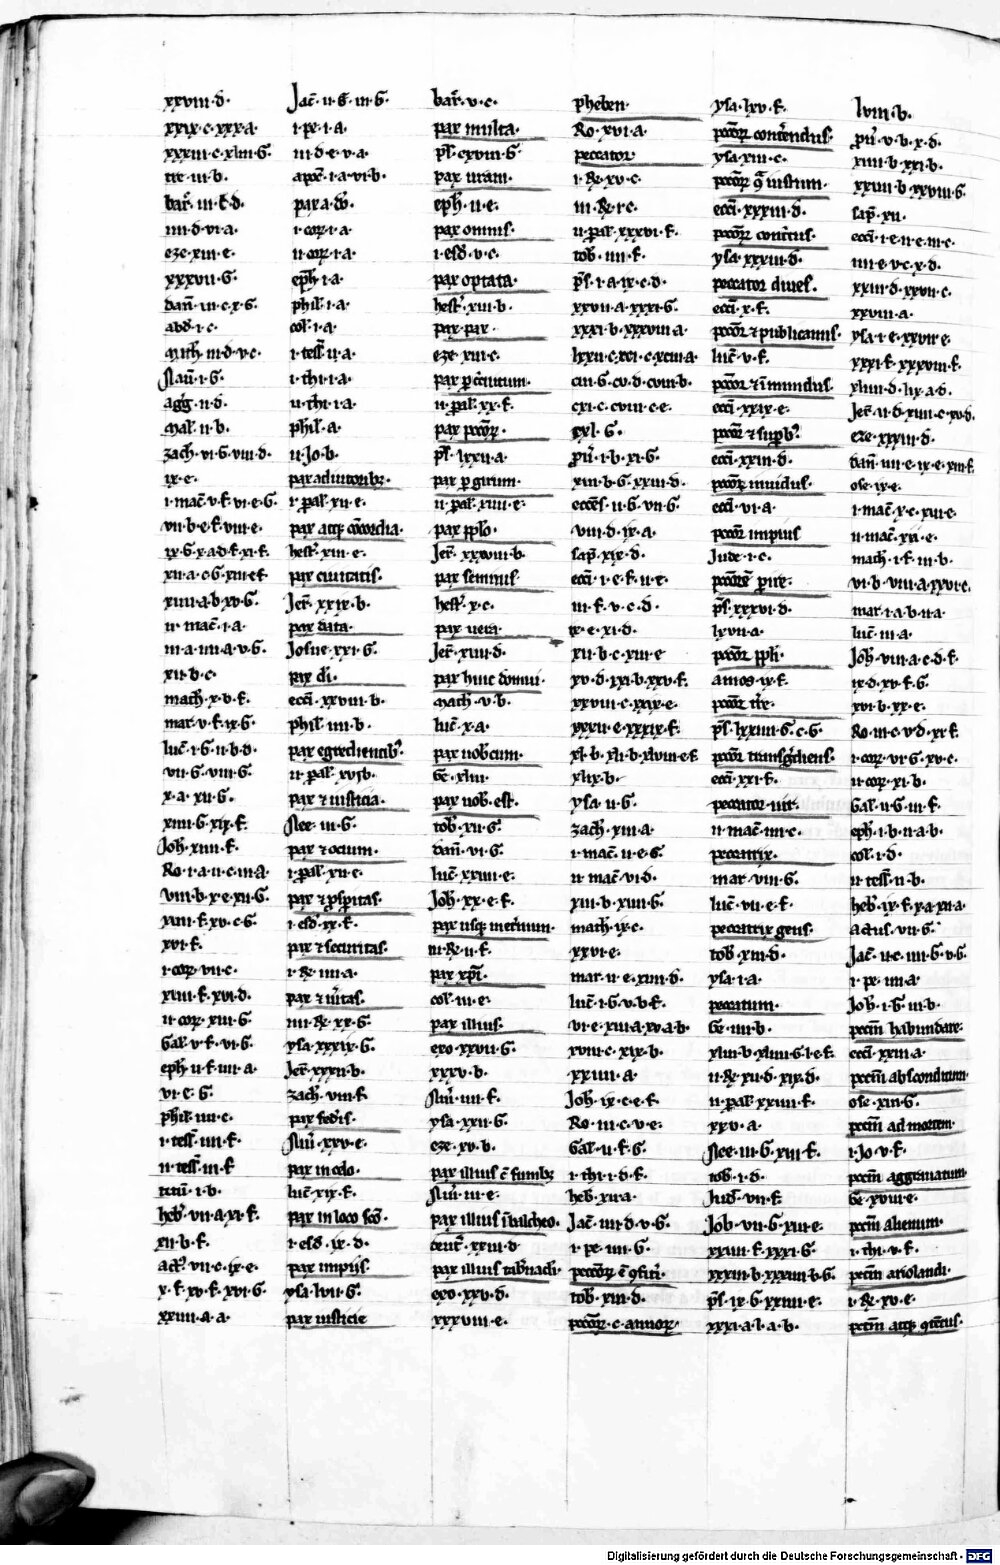 xxviii·d·
xxix·c·xxx·a·
xxxiii·c·xliii·G·
tre·iii·b·
bar̄·iii·c̄·d·
iiii·d·vi·a·
eze·xiii·e·
xxxvii·G·
dan̄·iii·c·x·G·
abd̄·i·c·
mich̄·iii·d·v·c·
Nau̅·i·G·
agḡ·ii·d·
mal̄·ii·b·
zach̄·vi·G·viii·d·
ix·e·
i·mac̄·v·f·vi·e·G·
vii·b·e·f·viii·e·
ix·G·x·a·d·f·xi·f·
xii·a·c·G·xiii·e·f
xiiii·a·b·xv·G·
ii·mac̄·i·a·
iii·a·iiii·a·v·G·
xii·b·c·
math·x·b·f·
mar·v·f·ix·G·
luc̄·i·G·ii·b·d·
vii·G·viii·G·
x·a·xii·G·
xiiii·G·xix·f·
Joh̄·xiiii·f·
Ro·i·a·ii·c·iii·a·
viii·b·x·e·xii·G·
xiiii·f·xv·c·G·
xvi·f·
i·cor̄·vii·c·
xiiii·f·xvi·d·
ii·cor̄·xiii·G·
Gal̄·v·f·vi·G·
eph̄·ii·f·iiii·a·
vi·c·G·
phil̄·iiii·c·
i·tess̄·iiii·f·
ii·tess̄·iii·f
titū·i·b·
heb̄·vii·a·xi·f·
xii·b·f·
act̄·vii·c·ix·e·
x·f·xv·f·xvi·G·
xxiiii·a·a·
Jac̄·ii·G·iii·G·
i·pe·i·a·
iii·d·e·v·a·
apoc̄·i·a·vi·b·
pax a dō·
i·cor̄·i·a·
ii·cor̄·i·a·
eph̄·i·a·
phil̄·i·a·
col̄·i·a·
i·tess̄·ii·a·
i·thi·i·a·
ii·thi·i·a·
phil̄·a·
ii·Jo·b·
pax adiutoribꝫ·
i·pal̄·xii·e·
pax atqꝫ cōcordia·
hest̄·xiii·e·
pax ciuitatis·
Jer̄·xxix·b·
pax data·
Josue·xxi·G·
pax di̅·
ecci̅·xxviii·b·
phil̄·iiii·b·
pax egredientibꝰ·
ii·pal̄·xvi·b·
pax ⁊ iusticia·
Nee·iii·G·
pax ⁊ ocium·
i·pal̄·xii·e·
pax ⁊ pspitas·
i·esd̄·ix·f·
pax ⁊ securitas·
i·R·iiii·a·
pax ⁊ ūitas·
iiii·R·xx·G·
ysa·xxxix·G·
Jer̄·xxxii·b·
zach̄·viii·f·
pax fedis·
Nu̅·xxv·e·
pax in celo·
luc̄·xix·f·
pax in loco sc̄o·
i·esd̄·ix·d·
pax impiis·
ysa·lvii·G·
pax iusticie
bar̄·v·c·
pax multa·
ps̄·cxviii·G·
pax uram·
eph̄·ii·e·
pax omnis·
i·esd̄·v·c·
pax optata·
hest̄·xiii·b·
pax pax·
eze·xiii·c·
ii·pal̄·xx·f·
pax pccōꝝ·
ps̄·lxxii·a·
pax p girum·
ii·pal̄·xiiii·e·
pax pplō·
Jer̄·xxxviii·b·
pax seminis·
hest̄·x·c·
pax uera·
Jer̄·xiiii·d·
pax huic domui·
math·v·b·
luc̄·x·a·
pax uobiscum·
Ge·xliii·
pax uob̄ est·
tob̄·xii·G·
dan̄·vi·G·
luc̄·xxiiii·e·
Joh̄·xx·e·f·
pax usqꝫ inet̄num·
iii·R·ii·f·
pax xp̄i·
col̄·iii·e·
pax illius·
exo·xxvii·G·
xxxv·b·
Nu̅·iiii·f·
ysa·xxii·G·
eze·xv·b·
Nu̅·iii·e·
ceut̄·xxiii·d
exo·xxv·d·
xxxviii·e·
pheben·
Ro·xvi·a·
peccator·
i·R·xv·c·
iii·R·i·c·
ii·pal̄·xxxvi·f·
tob̄·iiii·f·
ps̄·i·a·ix·c·d·
xxvii·a·xxxi·G·
xxxi·b·xxxviii·a·
lxxii·c·xci·c·xciii·a·
ciii·G·cv·d·cviii·b·
cxi·c·cviii·c·e·
cxl·G·
pu̅·i·b·xi·G·
xiii·b·G·xxiii·d·
ecces̄·ii·G·vii·G·
viii·d·ix·a·
sap̄·xix·d·
ecci̅·i·e·f·ii·e·
iii·f·v·c·d·
ix·e·xi·d·
xii·b·c·xiii·e
xv·d·xxi·b·xxv·f·
xxviii·c·xxix·e·
xxxii·e·xxxix·f·
xl·b·xli·b·xlviii·e·f
xlix·b·
ysa·ii·G·
zach̄·xiii·a·
i·mac̄·ii·e·G·
ii·mac̄·vi·d·
xiii·b·xiiii·G·
math̄·ix·c·
xxvi·e·
mar·ii·e·xiiii·d·
luc̄·i·G·v·b·f·
vi·e·xiii·a·xv·a·b·
xviii·c·xix·b·
xxiiii·a·
Joh̄·ix·c·e·f·
Ro·iii·c·v·e·
Gal̄·ii·f·G·
i·thi·i·d·f·
heb̄·xii·a·
Jac̄·iiii·d·v·G·
i·pe·iiii·G·
tob̄·xiii·d·
ysa·lxv·f·
pccōꝝ contēndus·
ysa·xiii·c·
ecci̅·xxxiii·d·
ysa·xxxiii·d·
peccator diues·
ecci̅·x·f·
pccōr ⁊ publicanus·
luc̄·v·f·
pccōr ⁊ īmundus·
ecci̅·xxix·e·
pccōr ⁊ supbꝰ·
ecci̅·xxiii·d·
pccōr inuidus·
eccl̄·vi·a·
pccōr impius
Jude·i·c·
ps̄·xxxvi·d·
lxvii·a·
pccōr ppli·
amos·ix·f·
pccōr tr̄e·
ps̄·lxxiiii·G·c·G·
pccōr transgr̄diens·
ecci̅·xxi·f·
peccator uir·
ii·mac̄·iiii·c·
peccatrix·
mar·viii·G·
luc̄·vii·e·f·
peccatrix gens·
tob̄·xiii·d·
ysa·i·a·
peccatum·
Ge·iiii·b·
xliii·b·xliiii·G·i·e·f·
ii·R·xii·d·xix·d·
ii·pal̄·xxiiii·f·
xxv·a·
Nee·iii·G·xiii·f·
tob̄·i·d·
Jud̄·vii·f·
Job·vii·G·xiii·e·
xxiiii·f·xxxi·G·
xxxiii·b·xxxiiii·b·G·
ps̄·ix·G·xxiiii·e·
xxxi·a·l·a·b·
lviii·b·
pu̅·v·b·x·d·
xiiii·b·xxi·b·
xxiiii·b·xxviii·G·
sap̄·xii·
ecci̅·i·e·ii·e·iii·c·
iiii·e·v·c·x·d·
xxiii·d·xxvii·c·
xxviii·a·
ysa·i·e·xxvii·e·
xxxi·f·xxxviii·f·
xliiii·d·lix·a·d·
Jer̄·ii·d·xiiii·c·xv·d·
eze·xxxiii·d·
dan̄·iiii·e·ix·e·xiii·f·
ose·ix·e·
i·mac̄·x·c·xii·c·
ii·mac̄·xii·e·
math·i·f·iii·b·
vi·b·viii·a·xxvi·c·
mar·i·a·b·ii·a·
luc̄·iii·a·
Joh̄·viii·a·c·d·f·
ix·d·xv·f·G·
xvi·b·xx·e·
Ro·iii·c·v·d·xi·f·
i·cor̄·vi·G·xv·c·
ii·cor̄·xi·b·
Gal̄·ii·G·iii·f·
eph̄·i·b·ii·a·b·
col̄·i·d·
ii·tess̄·ii·b·
heb̄·ix·f·x·a·xii·a·
actus·vii·G·
Jac̄·ii·c·iiii·G·v·G·
i·pe·iiii·a·
Joh̄·i·G·iii·b·
pcctm̄ habundare·
ecci̅·xxiii·a·
pcctm̄ absconditum·
ose·xiii·G·
pcctm̄ ad mortem·
i·Jo·v·f·
pcctm̄ aggrauatum·
Ge·xviii·e·
pcctm̄ alienum·
i·thi·v·f·
pcctm̄ ariolandi·
i·R·xv·e·
Digitalisierung gefördert durch die Deutsche Forschungsgemeinschaft - DFG